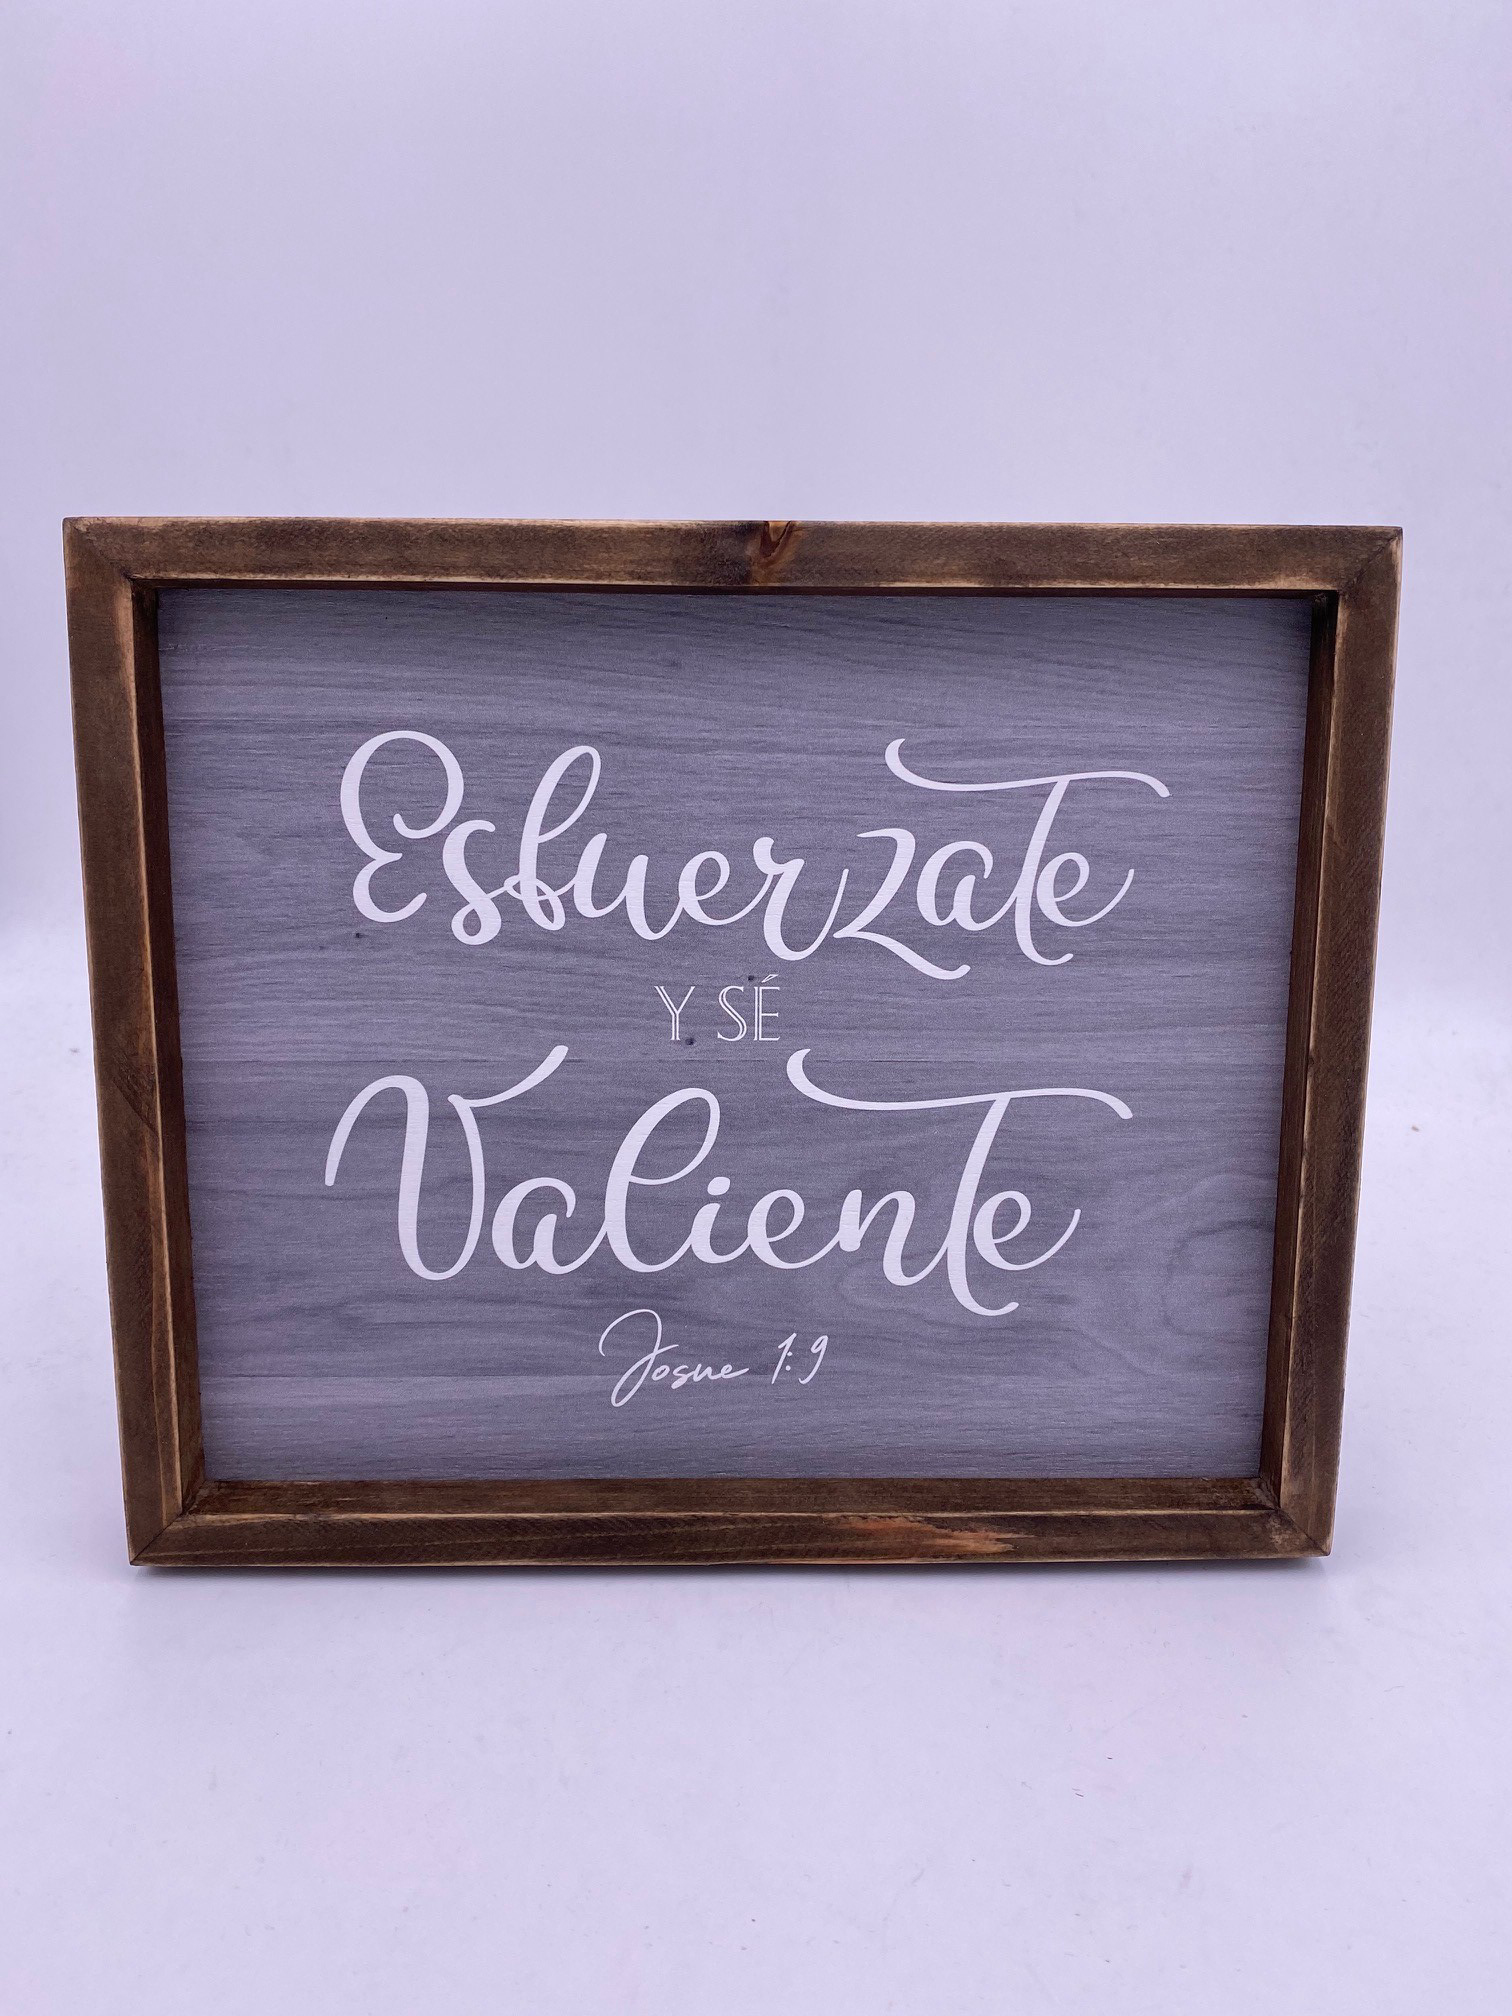 Esfuerzate
Y SÉ
Valiente
Josue 1:9